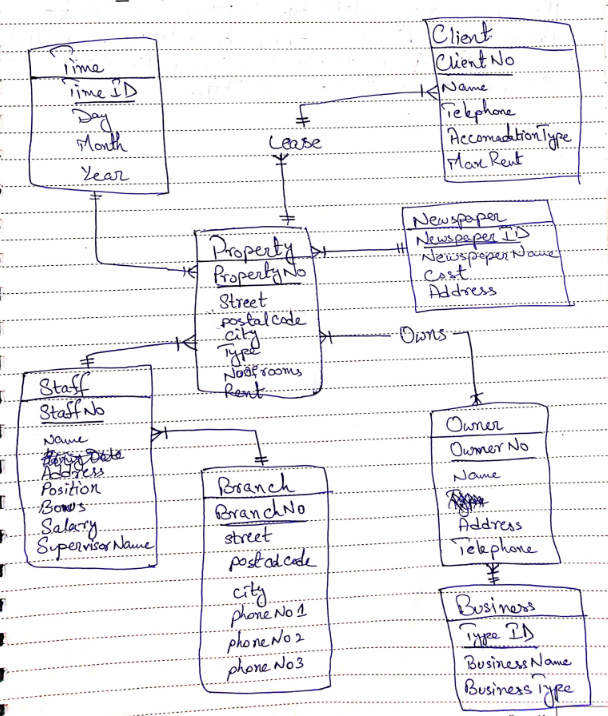 Time
Time ID
Day
Month
Year
Client
Client No
Name
Telephone
AccomadationType
Max Rent
Lease
Property
PropertyNo
Street
postalcode
city
Type
Noof rooms
Rent
Newspaper
Newspaper ID
NewspaperName
Cost
Address
Owns
Staff
StaffNo
Name
Address
Position
Bonus
Salary
SupervisorName
Branch
BranchNo
street
postalcode
city
phoneNo1
phoneNo2
phoneNo3
Owner
OwnerNo
Name
Address
Telephone
Business
Type ID
BusinessName
BusinessType